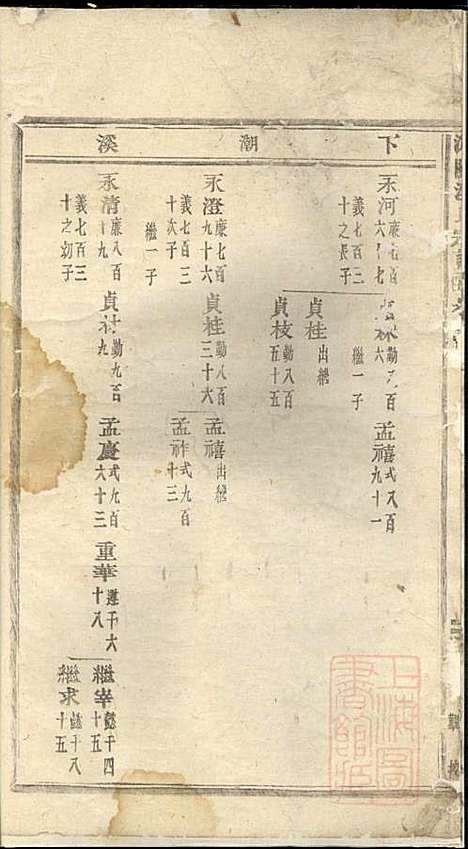 下潮溪
永河廉七百六十七
義七百三十之長子
勤八百六
繼一子
孟禧式八百九十一
貞桂出繼
貞枝勤八百五十五
永澄廉七百九十六
義七百三十次子
繼一子
貞桂勤八百三十六
孟禧出繼
孟祚式九百十三
永清廉八百十九
義七百三十之幼子
貞材勤九百九
孟慶式九百六十三
重華遵千六十八
繼宰懿千四十五
繼求懿千八十五
上海圖書館藏